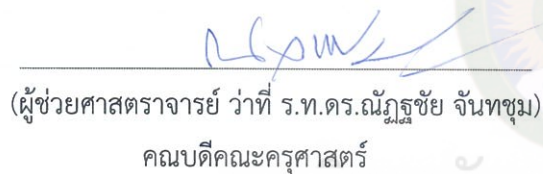 (ผู้ช่วยศาสตราจารย์ ว่าที่ ร.ท.ดร.ณัฏฐชัย จันทชุม)
คณบดีคณะครุศาสตร์